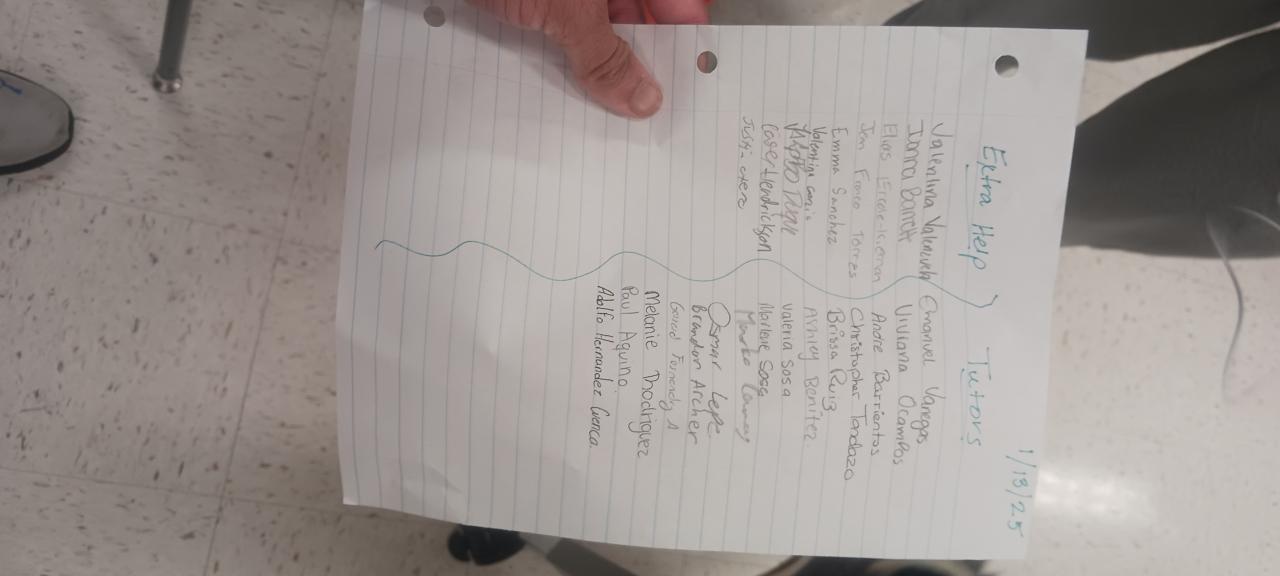 1/13/25
Extra Help
Valentina Valenzuela
Ianra Barrett
Elias
Jean Franco Torres
Emma Sanchez
Valentina
Casey Hendrickson
Justin otero
Tutors
Emanuel Vanegas
Viviana Ocampos
Andre Barrientos
Christopher Tandazo
Brissa Ruiz
Ashley Benitez
Valeria Sosa
Marlene Sosa
Osmar Lepe
Brandon Archer
Melanie Rodriguez
Paul Aquino
Adolfo Hernandez Cuenca.